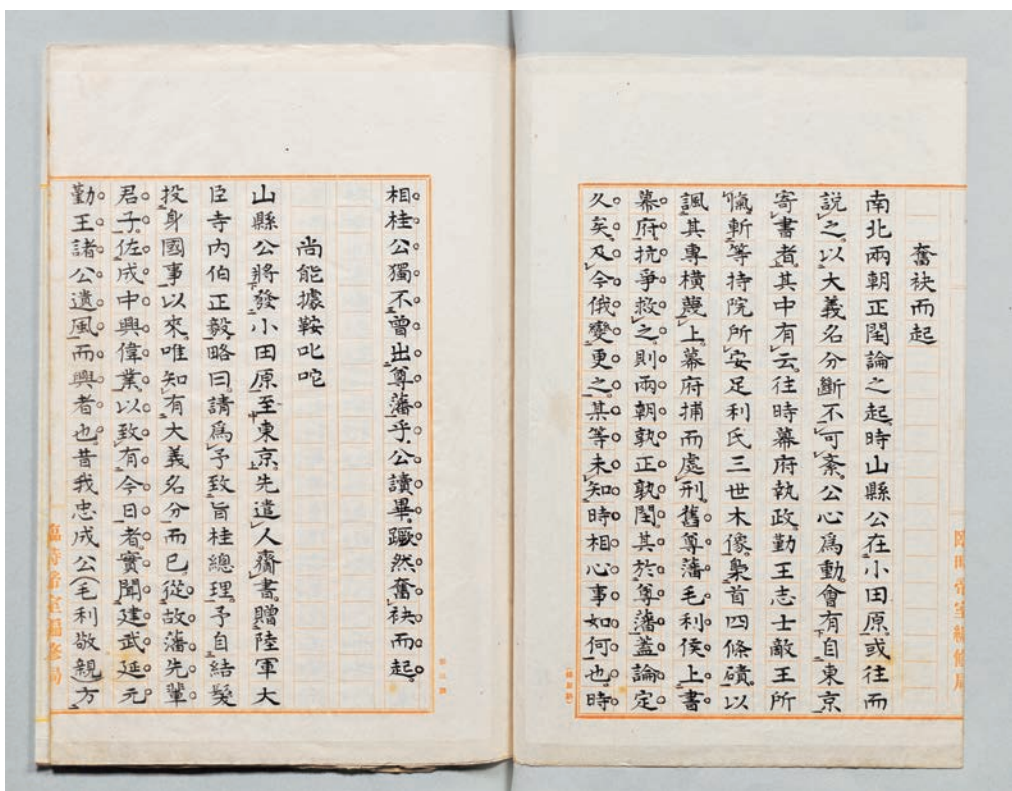 奮袂而起
南北兩朝正閏論之起時山縣公在小田原或往而
說之以大義名分斷不可紊公心爲動會有自東京
寄書者其中有云往時幕府執政勤王志士敵王所
愾斬等持院所安足利氏三世木像梟首四條磧以
諷其專橫蔑上幕府捕而處刑舊尊藩毛利侯上書
幕府抗爭救之則兩朝孰正孰閏其於尊藩蓋論定
久矣及今俄變更之某等未知時相心事如何也時
相桂公獨不曾出尊藩乎公讀畢蹶然奮袂而起
尚能據鞍叱咤
山縣公將發小田原至東京先遣人齎書贈陸軍大
臣寺内伯正毅略曰請爲予致旨桂總理予自結髮
投身國事以來唯知有大義名分而已從故藩先輩
君子佐成中興偉業以致有今日者實聞建武延元
勤王諸公遺風而興者也昔我忠成公(毛利敬親)方
臨時帝室編修局
臨時帝室編修局